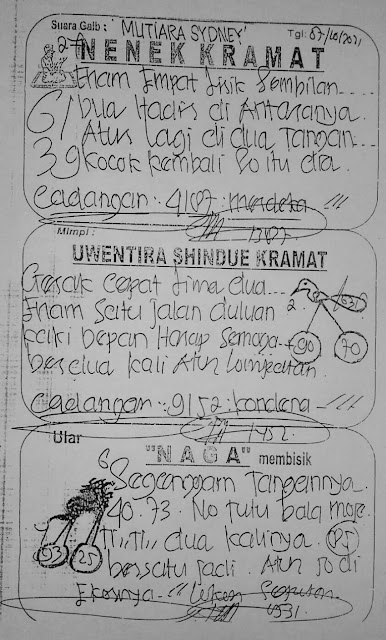 Suara Gaib : 'MUTIARA SYDNEY' Tgl: 07/10/2021
NENEK KRAMAT
Enam Empat Fisik Sembilan....
61 Dua Hadis di Antaranya.
Atur Lagi di dua Tangan....
39 Kocok Kembali 80 itu dia.
Cadangan : 4107 : merdeka
1307.
Mimpi :
UWENTIRA SHINDUE KRAMAT
Gerak Cepat Lima dua
Enam Satu Jalan duluan 2.
Kaki Depan Harap Semoga 90 70
ber dua kali Atur
Cadangan : 9152 :
1452.
Ular
"NAGA" membisik
6 Segenggam Tangannya.
40.73. No tutu bala more
Tri,Tri,, dua kalinya. 125
93 25 bersatu jadi. Atur 10 di
Ekornya
4531.